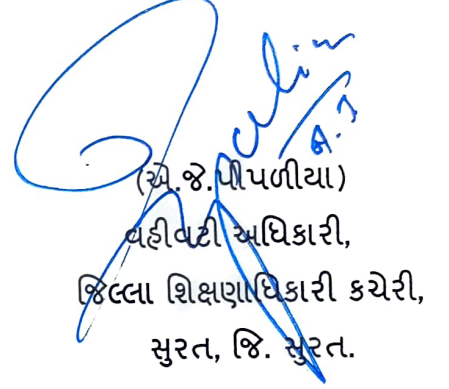 (એ.જે.પીપળીયા)
વહીવટી અધિકારી,
જિલ્લા શિક્ષણાધિકારી કચેરી,
સુરત, જિ. સુરત.